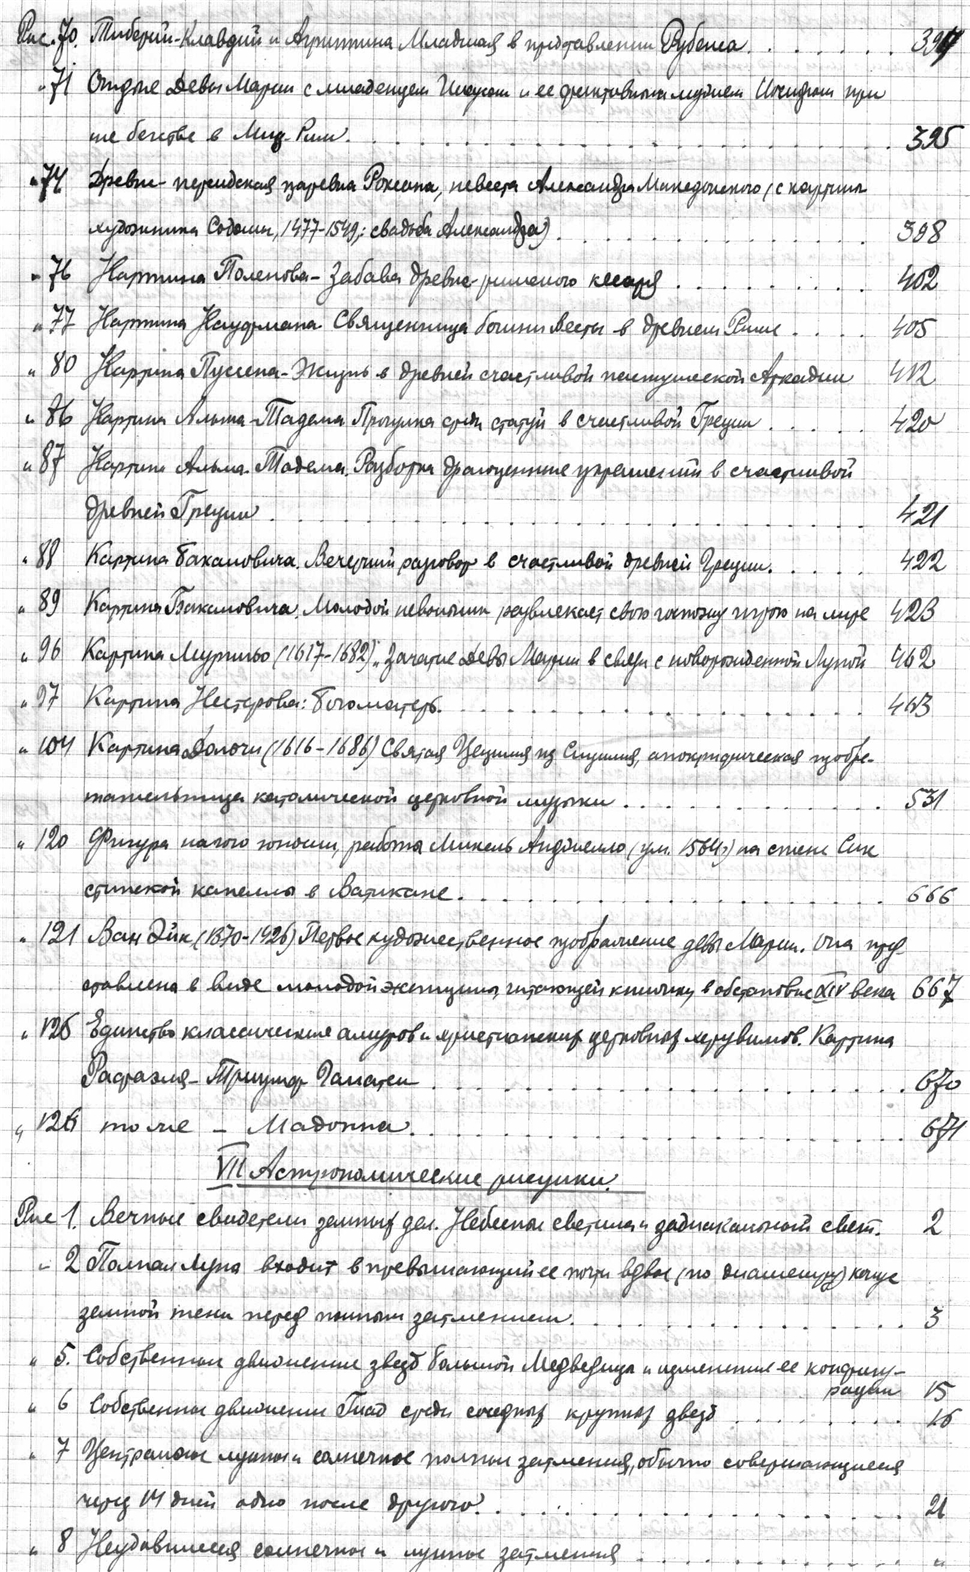 Рис. 70. Тиберий-Клавдий и Агриппина Младшая в представлении Рубенса . . . . . . . 394
" 71 Отдых Девы Марии с младенцем Иисусом и ее фиктивным мужем Иосифом при
их бегстве в Миц-Рим . . . . . . . 395
" 74 Древне-персидская царевна Роксана, невеста Александра Македонского (с картины
художника Содомы, 1477-1549,: свадьба Александра) . . . . . . . 398
" 76 Картина Поленова - Забава древне-римского кесаря . . . . . . . 402
" 77 Картина Кауфмана. Священница богини Весты в древнем Риме . . . . 405
" 80 Картина Пуссена - Жизнь в древней счастливой пастушеской Аркадии 412
" 86 Картина Альма-Тадема Прогулка среди статуй в счастливой Греции . . . . . 420
" 87 Картина Альма-Тадема. Разборка драгоценных украшений в счастливой
древней Греции . . . . . . . 421
" 88 Картина Бакаловича. Вечерний разговор в счастливой древней Греции. . . . . 422
" 89 Картина Бакаловича. Молодой невольник развлекает свою госпожу игрою на лире 423
" 96 Картина Мурильо (1617-1682) „Зачатие Девы Марии в связи с новорожденной Луной 462
" 97 Картина Нестерова: Богоматерь. . . . . . . 463
" 104 Картина Дольчи (1616-1686) Святая Цецилия из Сицилии, апокрифическая изобре-
тательница католической церковной музыки . . . . . . . 531
" 120 Фигура нагого юноши, работа Микель Анджелло (ум. 1564) на стене Сик
стинской капеллы в Ватикане . . . . . . . 666
" 121 Ван Эйк (1370-1426) Первое художественное изображение девы Марии. Она пред-
ставлена в виде молодой женщины, читающей книжку, в обстановке XIV века 667
" 125 Единство классических амуров и христианских церковных херувимов. Картина
Рафаэля - Триумф Галатеи . . . . . . . 670
" 126 то же - Мадонна . . . . . . . 671
VII Астрономические рисунки.
Рис 1. Вечные свидетели земных дел. Небесные светила и зодиакальный свет. 2
" 2 Полная Луна входит в превышающий ее почти вдвое (по диаметру) конус
земной тени перед полным затмением . . . . . . . 3
" 5. Собственное движение звезд Большой Медведицы и изменение ее конфигу-
рации 15
" 6 Собственное движение Гиад среди соседних крупных звезд . . . . . . . 16
" 7 Центральное лунное и солнечное полные затмения, обычно совершающиеся
через 14 дней одно после другого . . . . . . . 21
" 8 Неудавшиеся солнечное и лунное затмения . . . . . . . "